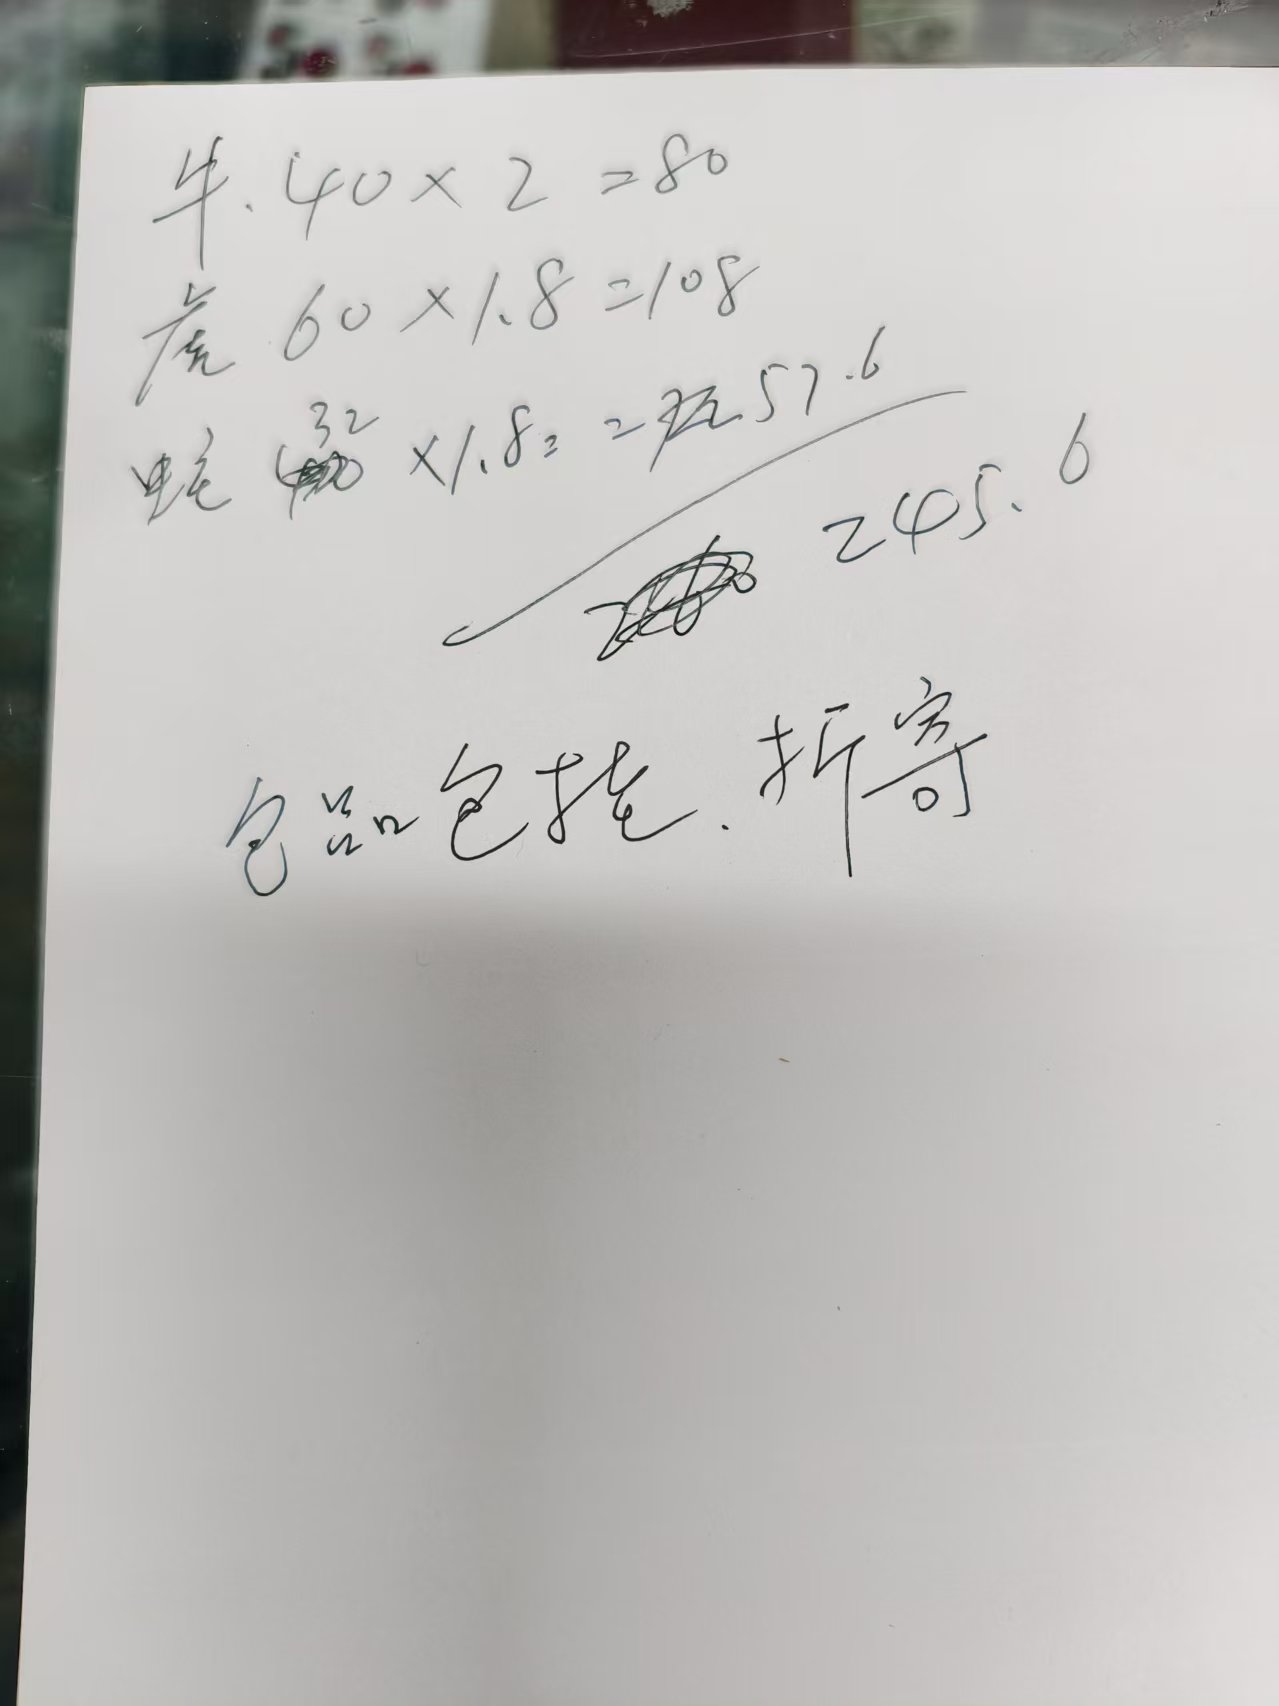 牛.40×2=80
虎 60×1.8=108
蛇 32×1.8= =57.6
245.6
包品包挂.折寄